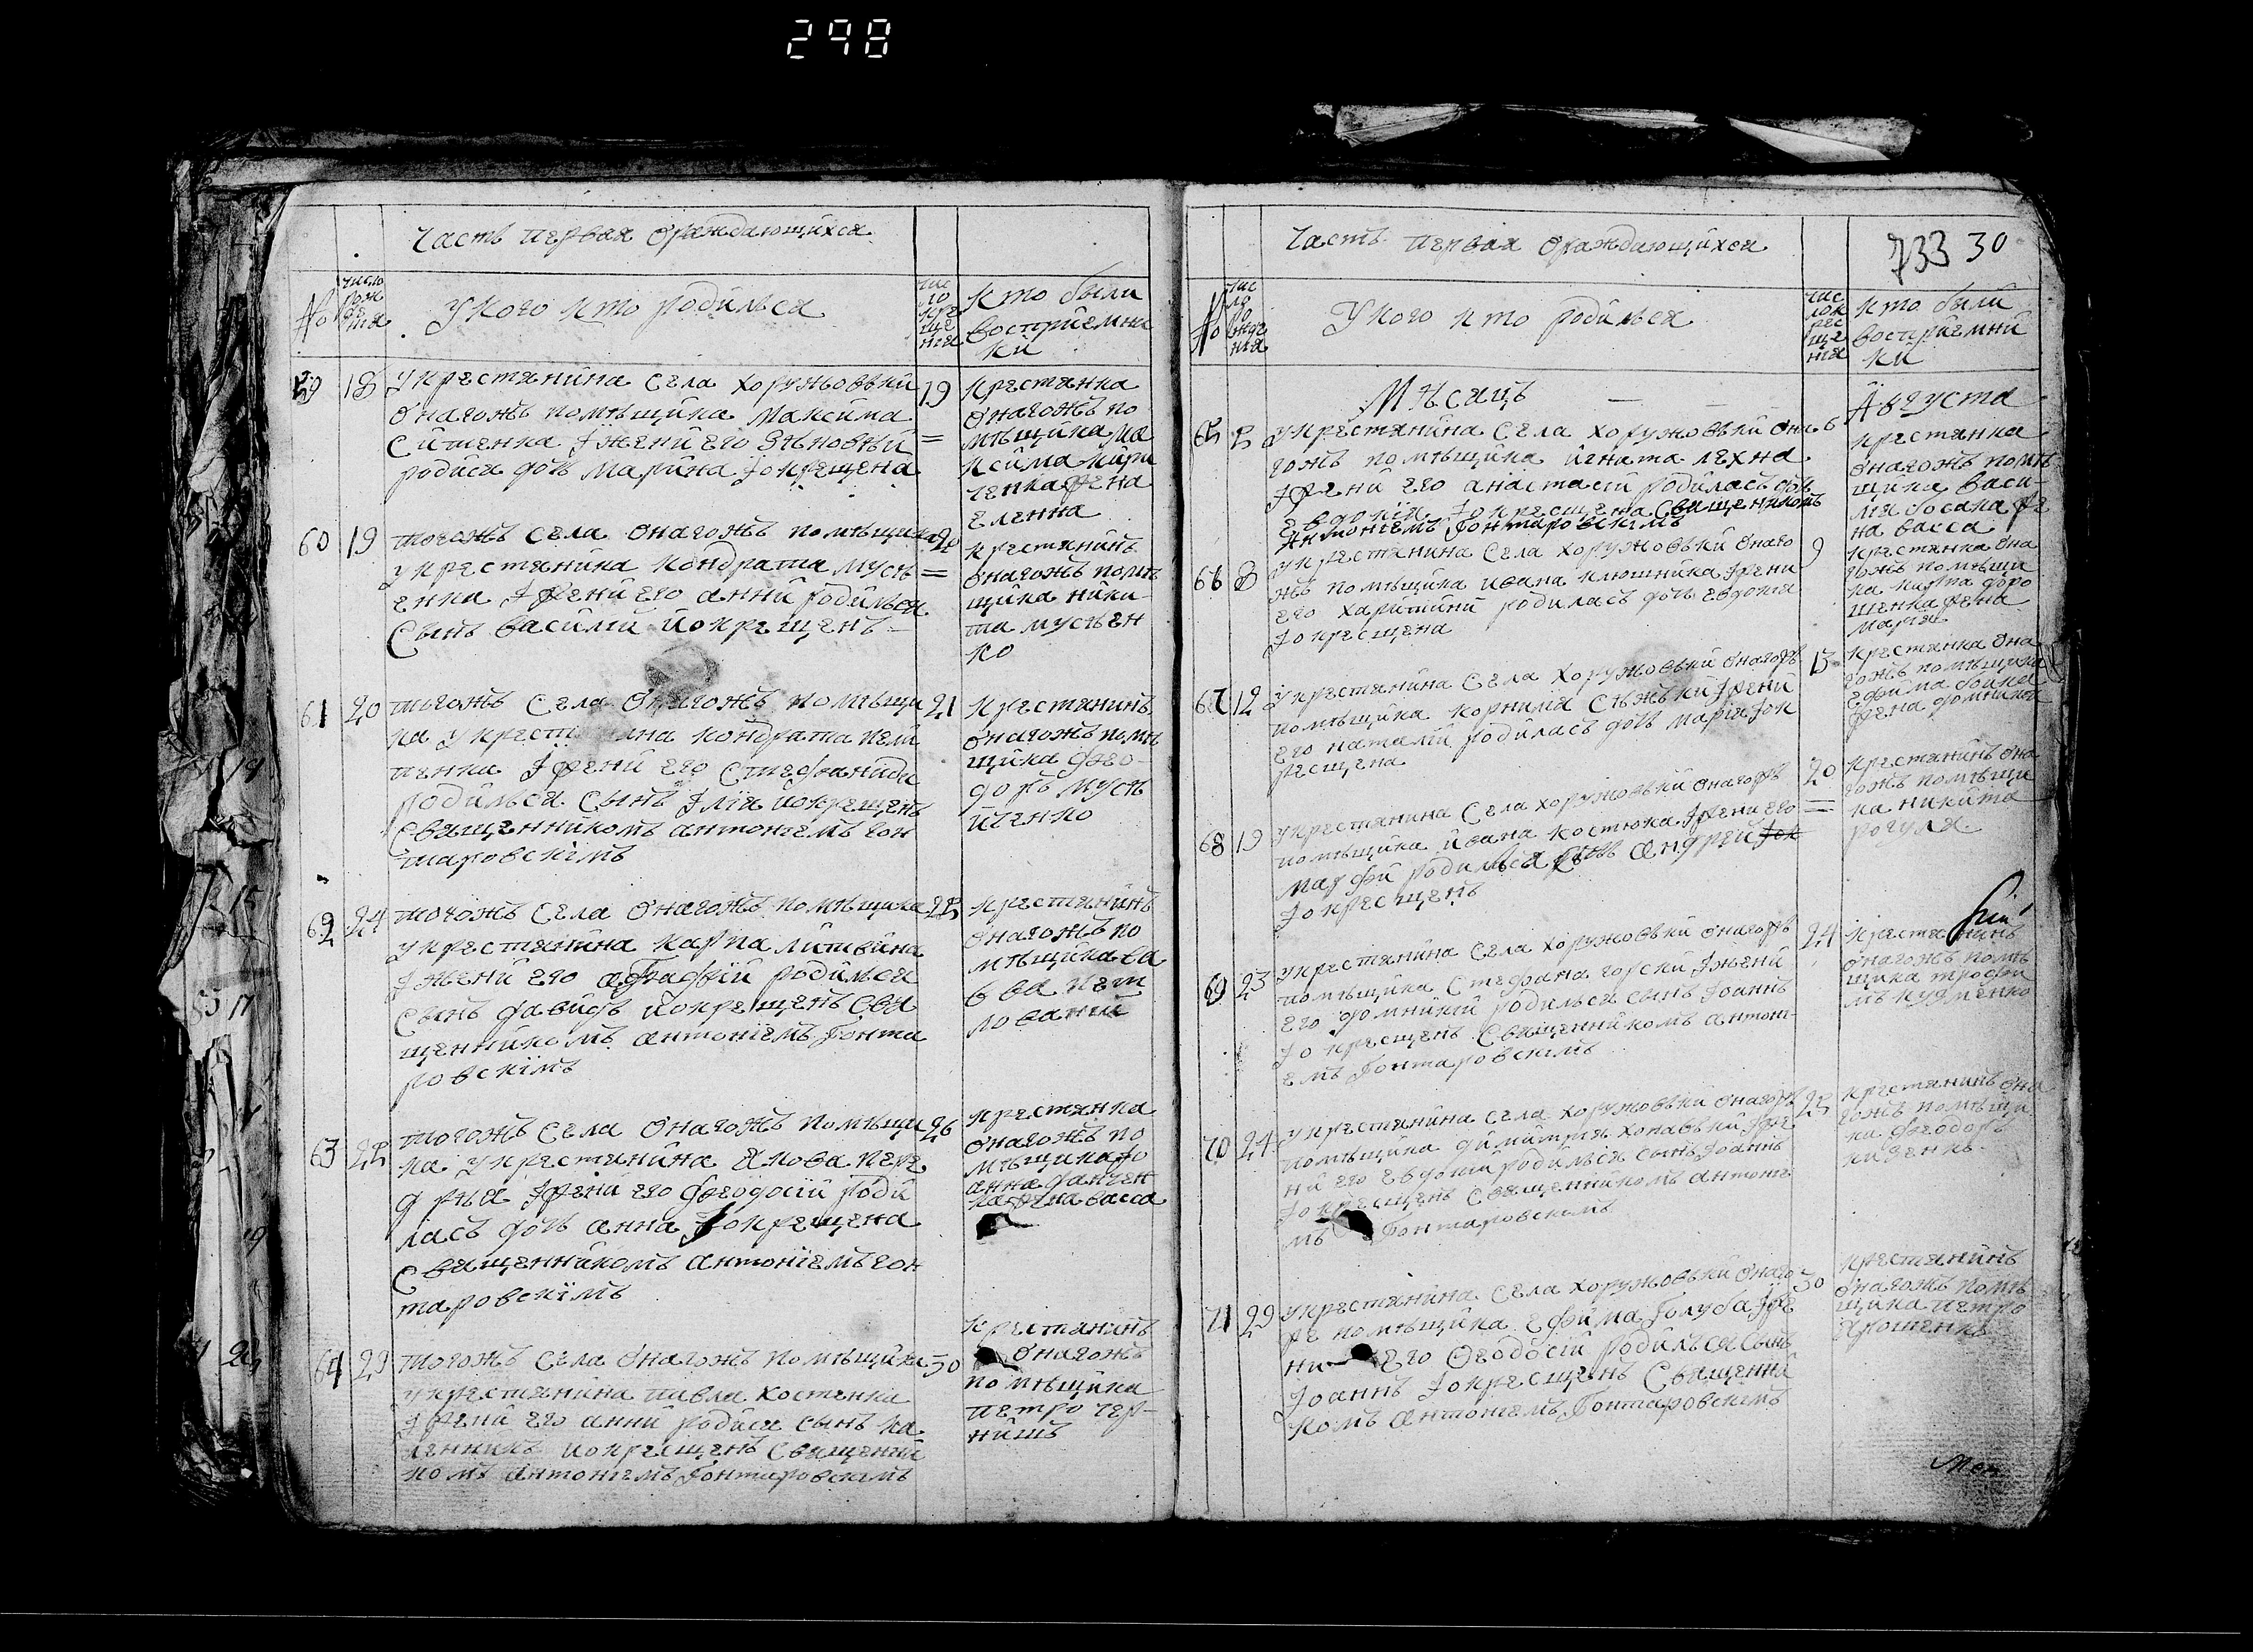 298
Часть первая ораждающихся
No
число
рож
де
ния
У кого кто родился
чис
ло
кре
ще
ния
кто были
восприемни
ки
59 18 У крестянина села хоружовки 19
онагожъ помѣщика Максима
Ситенка Ї жени его Зѣновѣи
родися дочь Марина Ї окрещена
крестянка
онагожъ по
мѣщика ма
ксима кири
ченка жена
еленна
60 19 тогожъ села онагожъ помѣщика 20
у крестянина кондрата мусѣ
енка Ї жени его анни родилься
Сынъ василий и окрещенъ
крестянинъ
онагожъ помѣ
щика ники
та мусѣен
ко
61 20 тогожъ села онагожъ помѣщи 21
ка у крестянина кондрата
Ї жени его Стефанида
родилься Сынъ Їлїя и окрещенъ
Священникомъ антонїемъ гон
таровскїмъ
крестянинъ
онагожъ помѣ
щика фео
доръ мусѣ
йченко
62 24 тогожъ села онагожъ помѣщика 25
у крестянина карпа литвина
Ї жени его агафїи родился
Сынъ давидъ и окрещенъ Свя
щенникомъ антонїемъ Гонта
ровскїмъ
крестянинъ
онагожъ по
мѣщика са
ва
63 25 тогожъ села онагожъ помѣщи 26
ка у крестянина Якова пере
Ї жени его феодосїи роди
лась дочь анна Ї окрещена
Священникомъ антонїемъ гон
таровскїмъ
крестянка
онагожъ по
мѣщика їо
анна
жена васса
64 29 тогожъ села онагожъ помѣщика 30
у крестянина павла костенка
Ї жени его анни родися сынъ ка
ленникъ и окрещенъ Священни
комъ антонїемъ Гонтаровскимъ
крестянинъ
онагожъ
помѣщика
петро чер
нишъ
Часть первая ораждающихся
733 30
No
чис
ло
рожде
ния
У кого кто родилься
чис
ло к
рес
ще
ния
кто были
восприемни
ки
Мѣсяцъ Августа
65 5 У крестянина села хоружовки она 6
гожъ помѣщика игната лехна
Ї жени его анастасїи родилась дочь
евдокїя Ї окресщена Священикомъ
Антонїемъ Гонтаровскїмъ
крестянка
онагожъ помѣ
щика васи
лия босака же
на васса
66 8 У крестянина села хоружовки онаго 9
жъ помѣщика ивана ключника Ї жени
его харитини родилась дочь евдокїя
Ї окресщена
крестянка она
гожъ помѣщи
ка карпа доро
шенка жена
марїя
67 12 У крестянина села хоружовки онагожъ 13
помѣщика корнилїя Ї жени
его наталїи родилась дочь марїя Ї ок
ресщена
крестянка она
гожъ помѣщика
ефима бойка
жена домникия
68 19 У крестянина села хоружовки онагожъ 20
помѣщика ивана костюка Ї жени его
марфи родилься Сынъ андрей
Ї окресщенъ
крестянинъ она
гожъ помѣщи
ка никита
рогуля
69 23 У крестянина села хоружовки онагожъ 24
помѣщика Стефана горски Ї жени
его домникїи родилься сынъ Їоаннъ
Ї окресщенъ Священникомъ антонї
емъ Гонтаровскимъ
крестянинъ
онагожъ помѣ
щика трофи
мъ кузменко
70 24 У крестянина села хоружовки онагожъ 25
помѣщика димитрия Ї же
ни его евдокїи родилься сынъ Їоаннъ
Ї окресщенъ Священникомъ антонїе
мъ Гонтаровскимъ
крестянинъ она
гожъ помѣщи
ка феодоръ
71 29 У крестянина села хоружовки онаго 30
же помѣщика ефима Голуба Ї же
ни его Феодосїи родилься Сынъ
Їоаннъ Ї окресщенъ Священни
комъ антонїемъ Гонтаровскимъ
крестянинъ
онагожъ помѣ
щика петро
Ярошенко